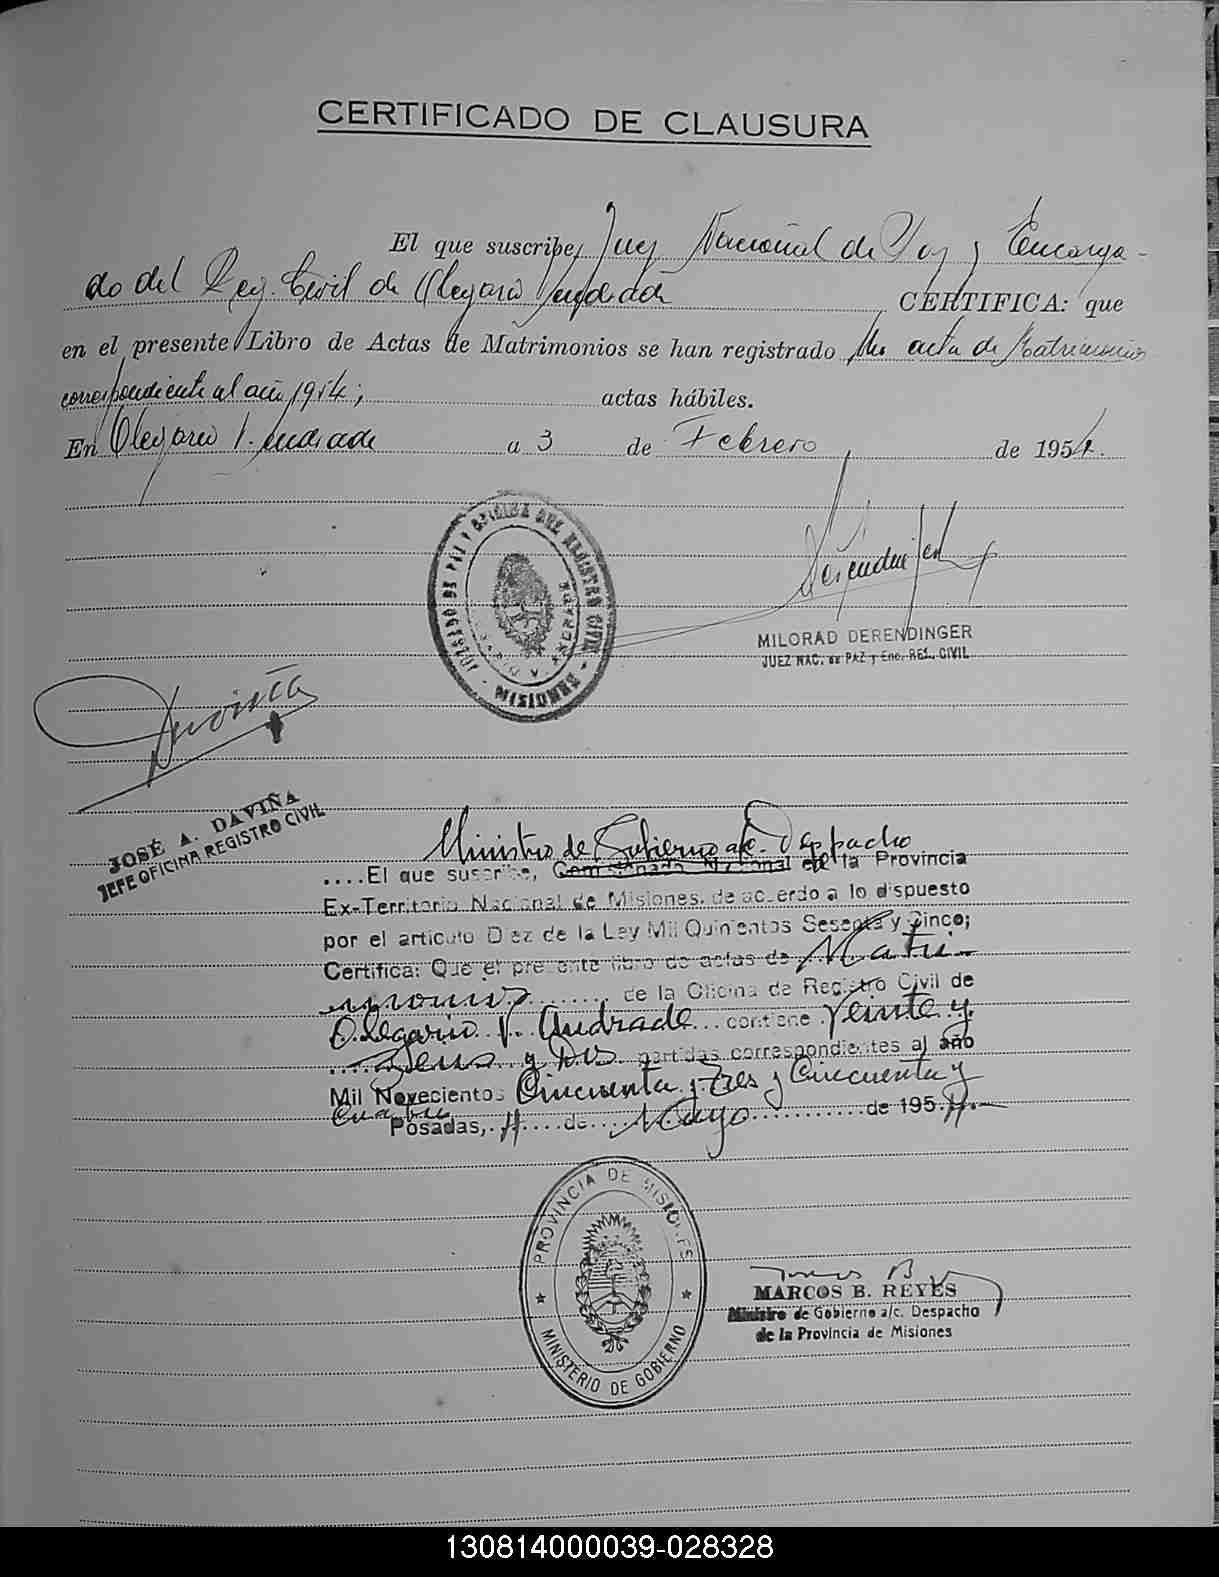 CERTIFICADO DE CLAUSURA
El que suscribe, Juez Nacional de Paz y Encarga-
do del Reg. Civil de Olegario V. Andrade CERTIFICA: que
en el presente Libro de Actas de Matrimonios se han registrado Una acta de Matrimonios
correspondiente al año 1954; actas hábiles.
En Olegario V. Andrade a 3 de Febrero de 1954.
JUZGADO DE PAZ Y OFICINA DEL REGISTRO CIVIL
ANDRADE
- MISIONES -
MILORAD DERENDINGER
JUEZ NAC. de PAZ y Enc. REG. CIVIL
JOSÉ A. DAVIÑA
JEFE OFICINA REGISTRO CIVIL
Ministro de Gobierno a/c. Despacho
....El que suscribe, Comisionado Nacional de la Provincia
Ex-Territorio Nacional de Misiones, de acuerdo a lo dispuesto
por el articulo Diez de la Ley Mil Quinientos Sesenta y Cinco;
Certifica: Que el presente libro de actas de Matri-
monios ........ de la Oficina de Registro Civil de
Olegario V. Andrade... contiene Veinte y
y Dos partidas correspondientes al año
Mil Novecientos Cincuenta y Tres y Cincuenta y
Cuatro
Posadas, 11 .... de .... Mayo .......... de 195
PROVINCIA DE MISIONES
MINISTERIO DE GOBIERNO
MARCOS B. REYES
Ministro de Gobierno a/c. Despacho
de la Provincia de Misiones
130814000039-028328